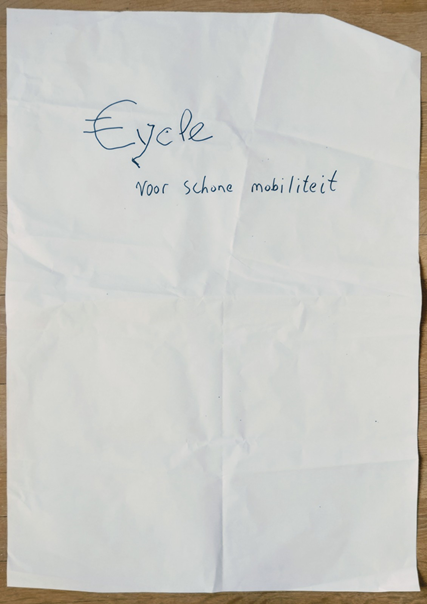 €ycle
voor schone mobiliteit